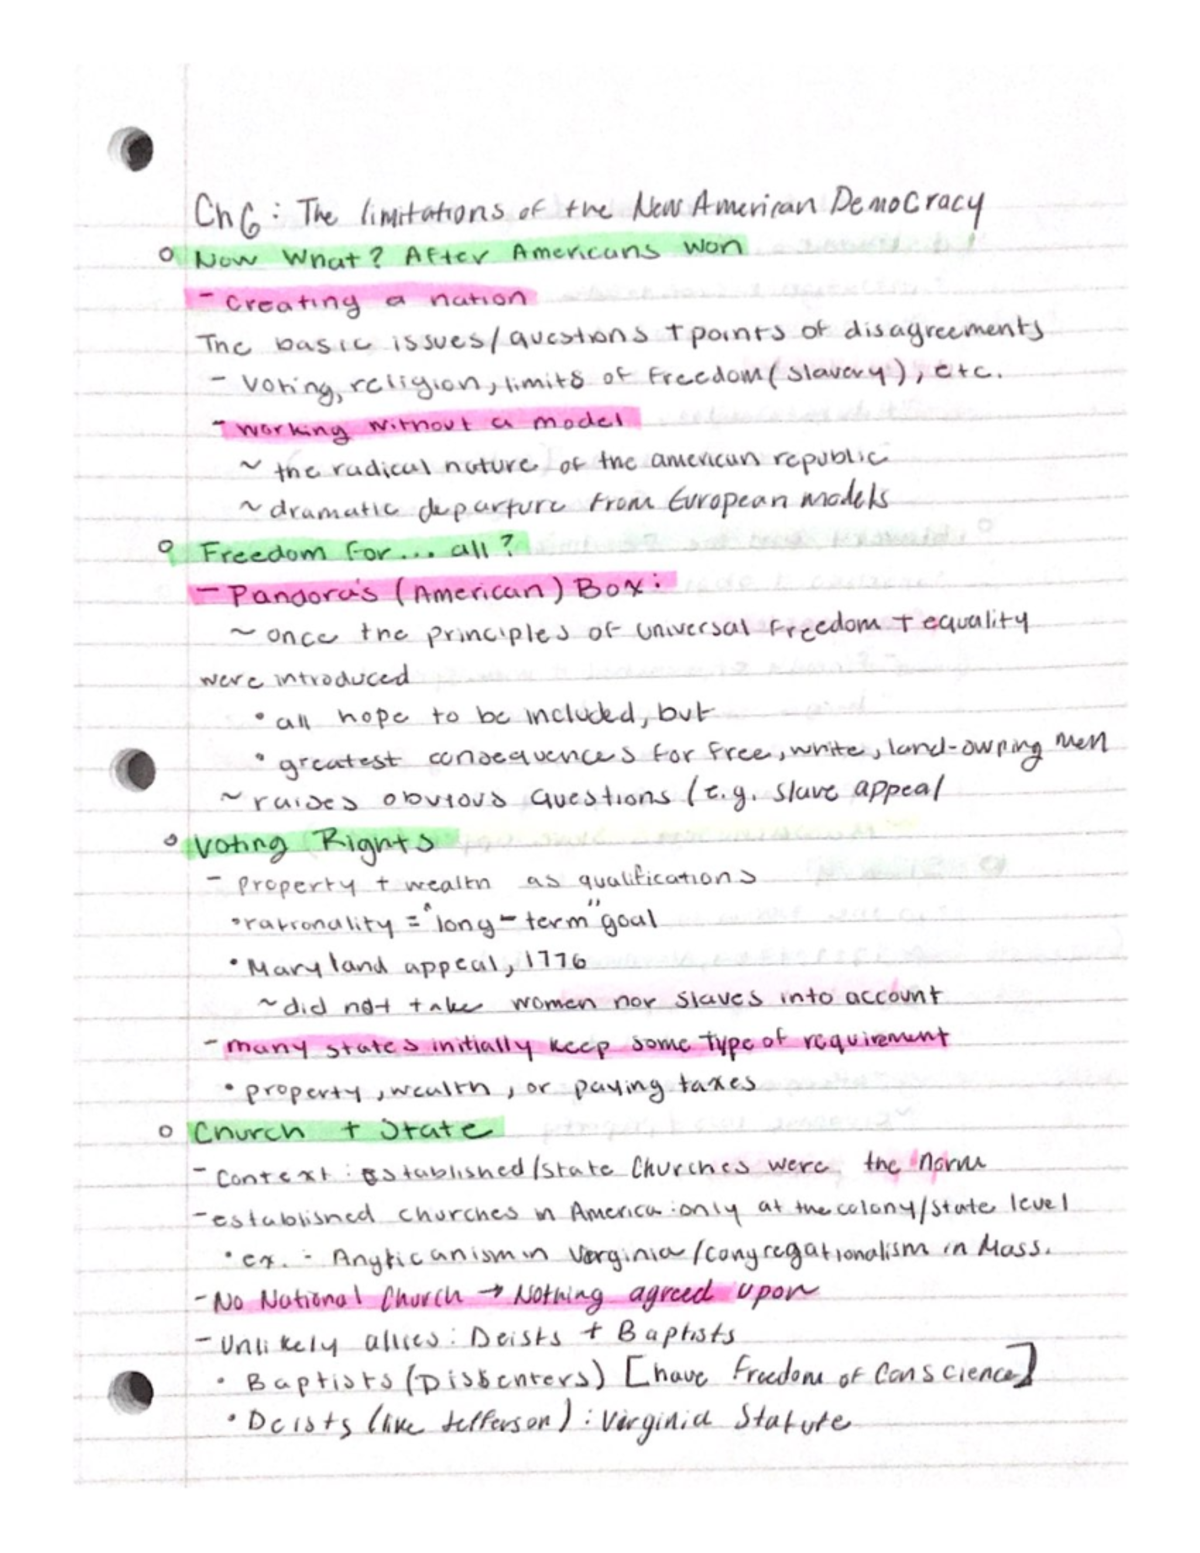 Ch 6: The limitations of the New American Democracy
o Now What? After Americans won
- creating a nation
The basic issues/questions + points of disagreements
- Voting, religion, limits of freedom (slavery), etc.
- working without a model
~ the radical nature of the american republic
~ dramatic departure from European models
o Freedom for... all?
- Pandora's (American) Box:
~ once the principles of universal freedom + equality
were introduced
• all hope to be included, but
• greatest consequences for free, white, land-owning men
~ raises obvious questions (e.g. slave appeal
o Voting Rights
- property + wealth as qualifications
• rationality = "long-term" goal
• Maryland appeal, 1776
~ did not take women nor slaves into account
- many states initially keep some type of requirement
• property, wealth, or paying taxes
o Church + State
- Context: Established/State Churches were the norm
- established churches in America: only at the colony/state level
• ex. - Anglicanism in Virginia/Congregationalism in Mass.
- No National Church → Nothing agreed upon
- Unlikely allies: Deists + Baptists
• Baptists (Dissenters) [have Freedom of Conscience]
• Deists (like Jefferson): Virginia Statute